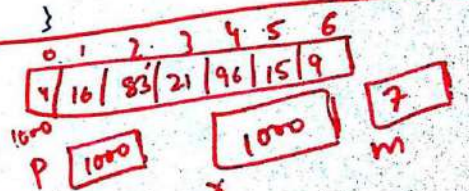 }
0 1 2 3 4 5 6
4 16 83 21 96 15 9
1000
P 1000 1000 7
x m